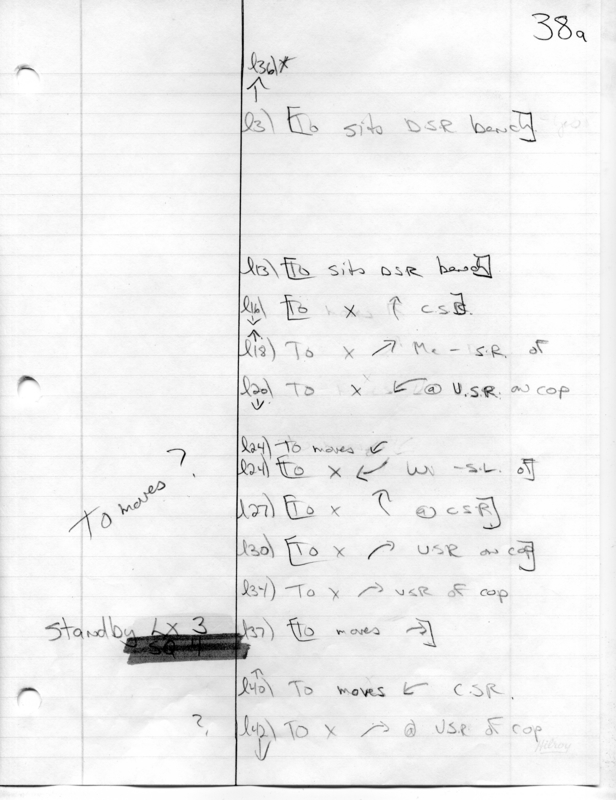 38a
l36)*
↑
l3) [To sits DSR bench]
l13) [To sits DSR bench]
l16) [To x ↑ CSR]
↓
↑
l18) To x ↗ Me - S.R. of
l20) To x ↙ @ U.S.R. on cop
↓
l24) To moves ↙
l24) [To x ↙ Wi - S.L. of]
To moves ?
l27) [To x ↑ @ CSR]
l30) [To x ↗ USR on cop]
l34) To x ↗ USR of cop
Standby LX 3
SQ 4
l37) [To moves →]
↑
l40) To moves ↙ CSR.
?, l42) To x ↗ @ USR of cop
↓
Hilroy